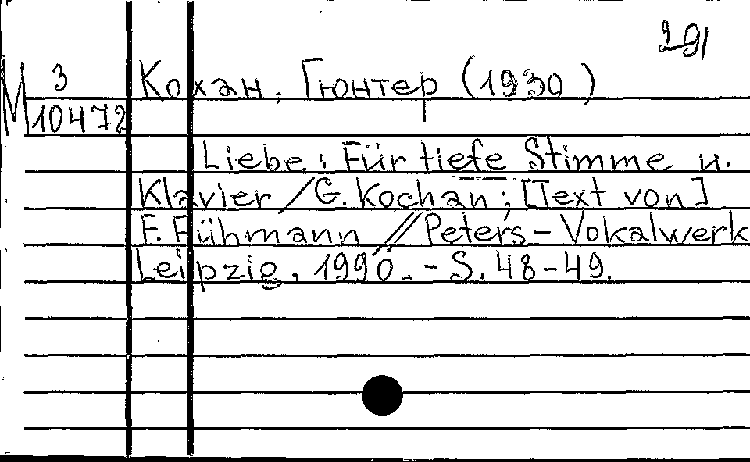 291
М 3
10472
Кохан, Гюнтер (1930 )
Liebe: Für tiefe Stimme u.
Klavier / G. Kochan; [Text von]
F. Fühmann // Peters - Vokalwerk
Leipzig, 1990. - S. 48-49.